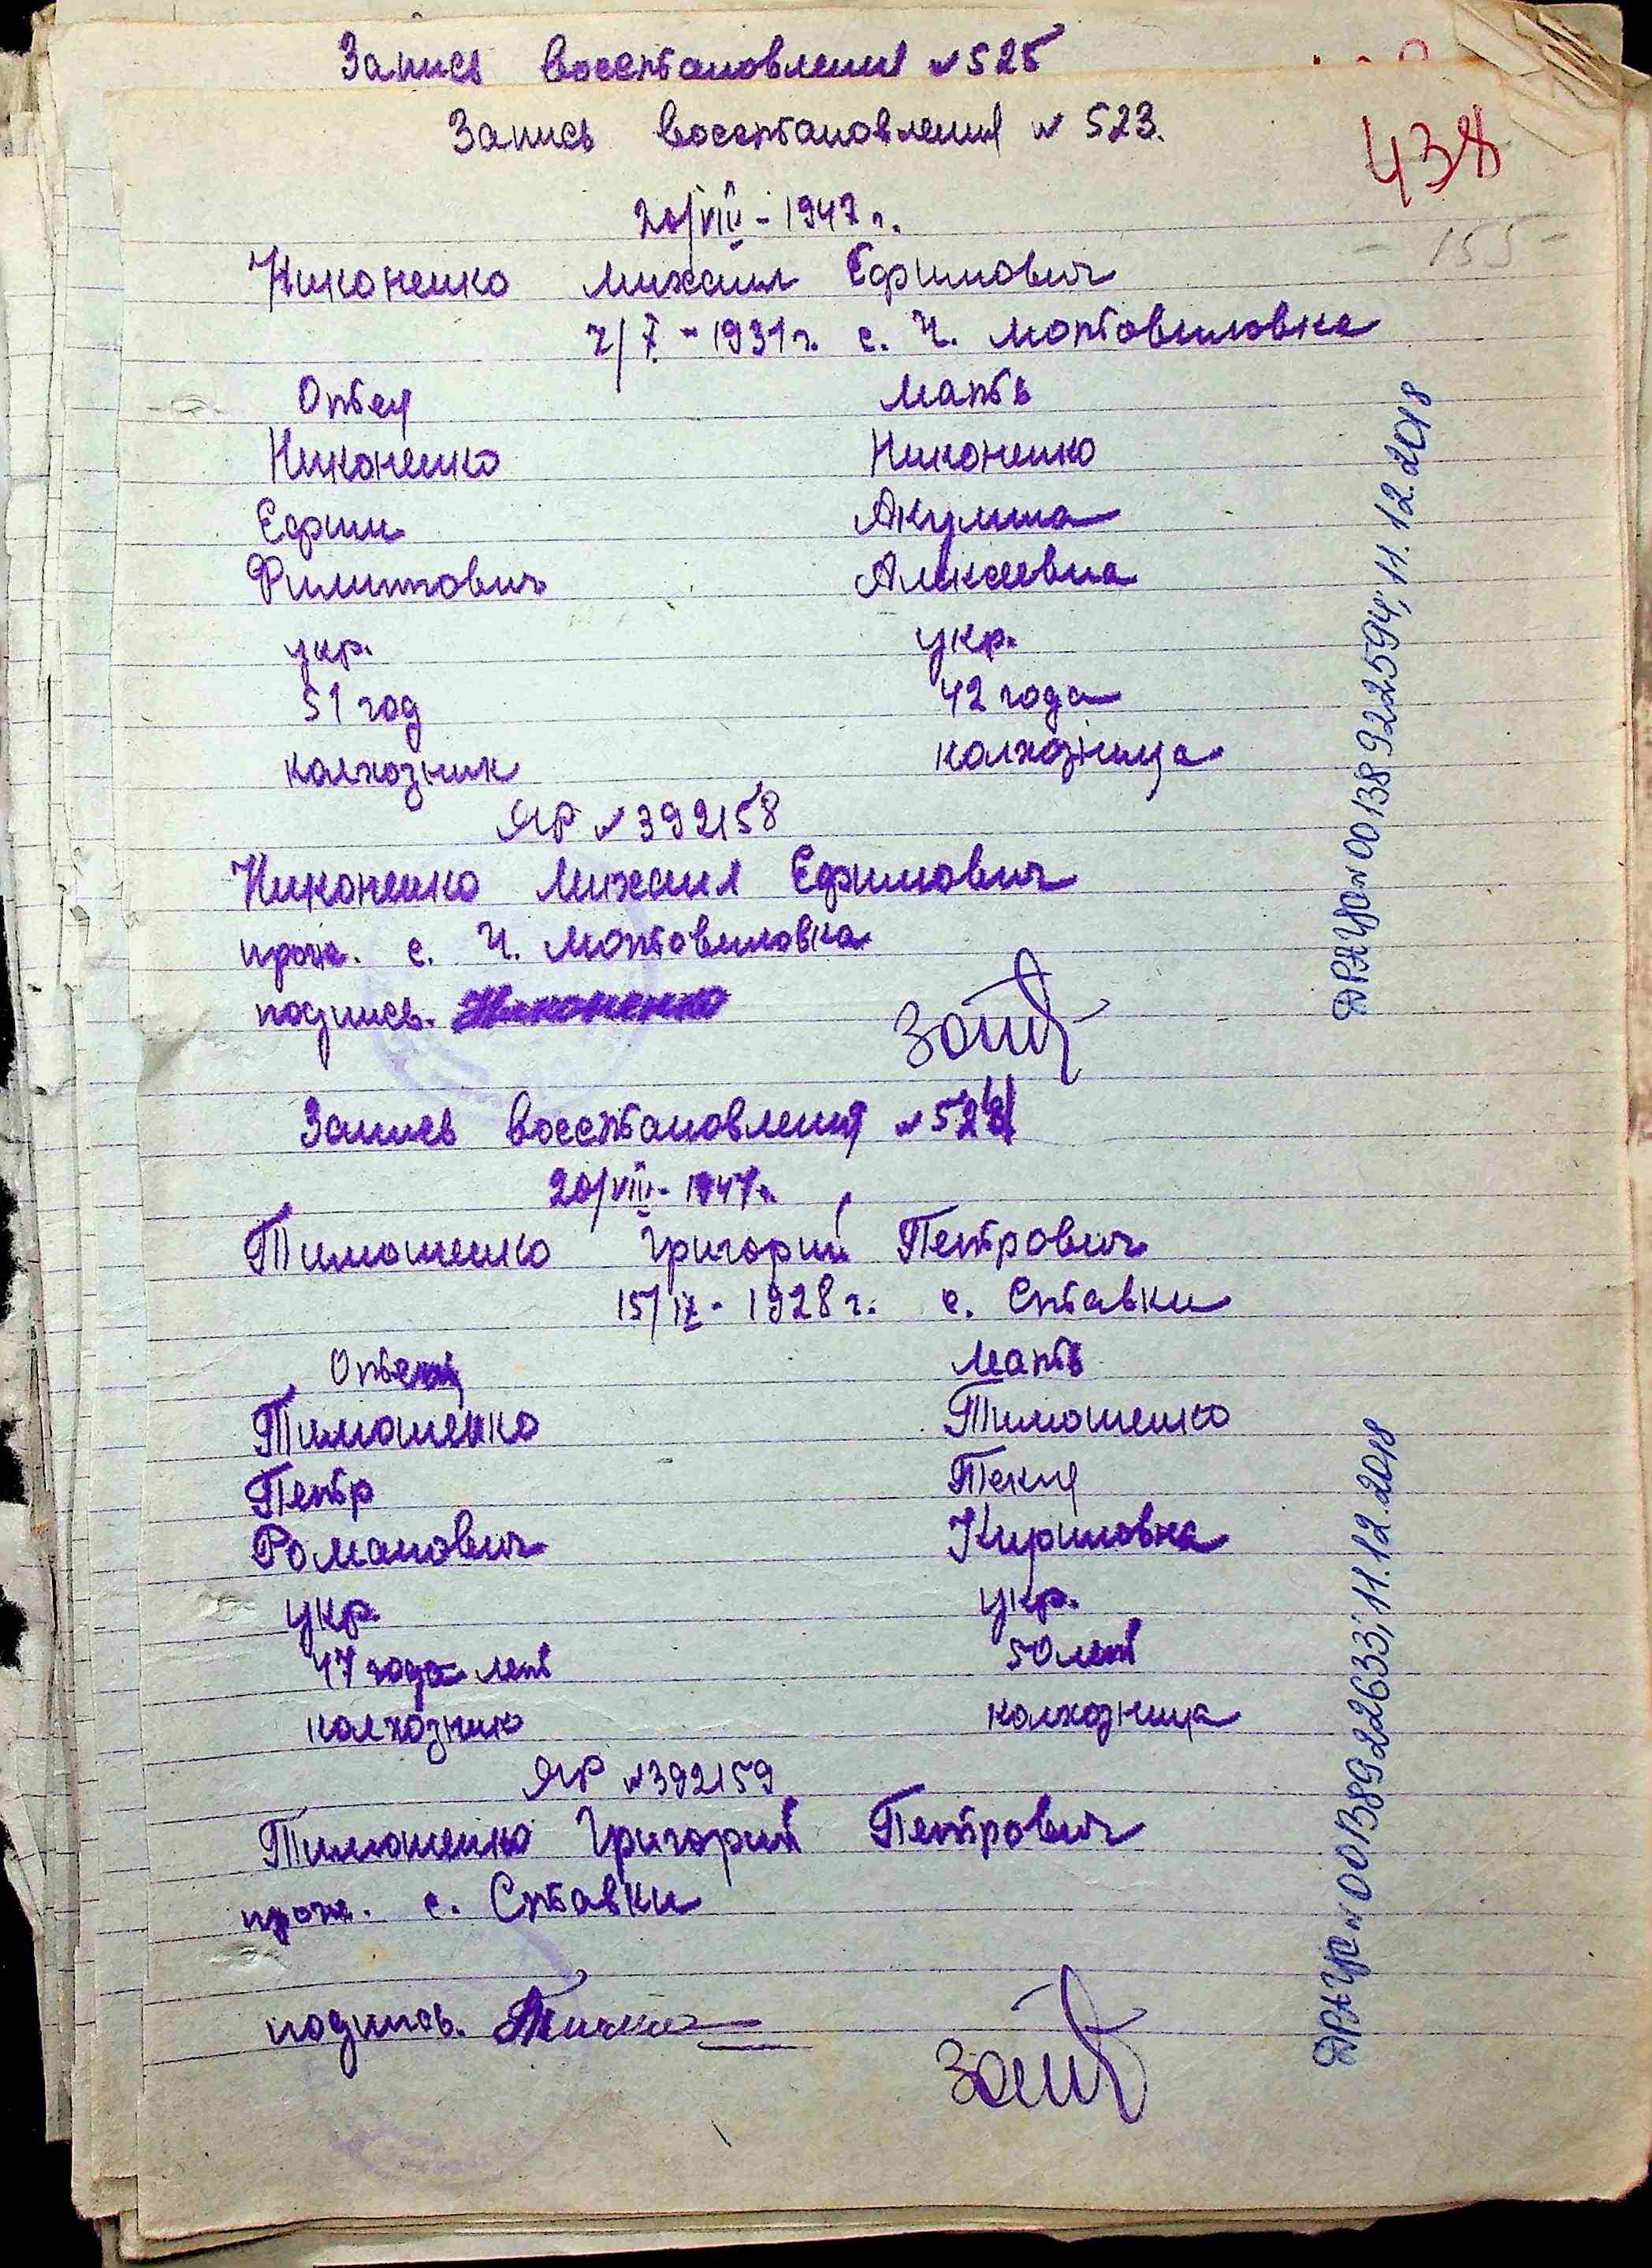 Запись восстановления № 525
Запись восстановления № 523.
438
20/VIII - 1947 г.
- 155 -
Никоненко Михаил Ефимович
7/X - 1931 г. с. Ч. Мотовиловка
Отец Мать
Никоненко Никоненко
Ефим Акулина
Филиппович Алексеевна
укр. укр.
51 год 42 года
колхозник колхозница
ЯР № 392158
Никоненко Михаил Ефимович
прож. с. Ч. Мотовиловка
подпись. Никоненко
Запись восстановления № 524
20/VIII - 1947 г.
Тимошенко Григорий Петрович
15/IX - 1928 г. с. Ставки
Отец Мать
Тимошенко Тимошенко
Петр Текля
Романович Кириловна
укр. укр.
47 года лет 50 лет
колхозник колхозница
ЯР № 392159
Тимошенко Григорий Петрович
прож. с. Ставки
подпись.
ДРАЦУ № 00138922594; 11.12.2018
ДРАЦУ № 00138922633; 11.12.2018